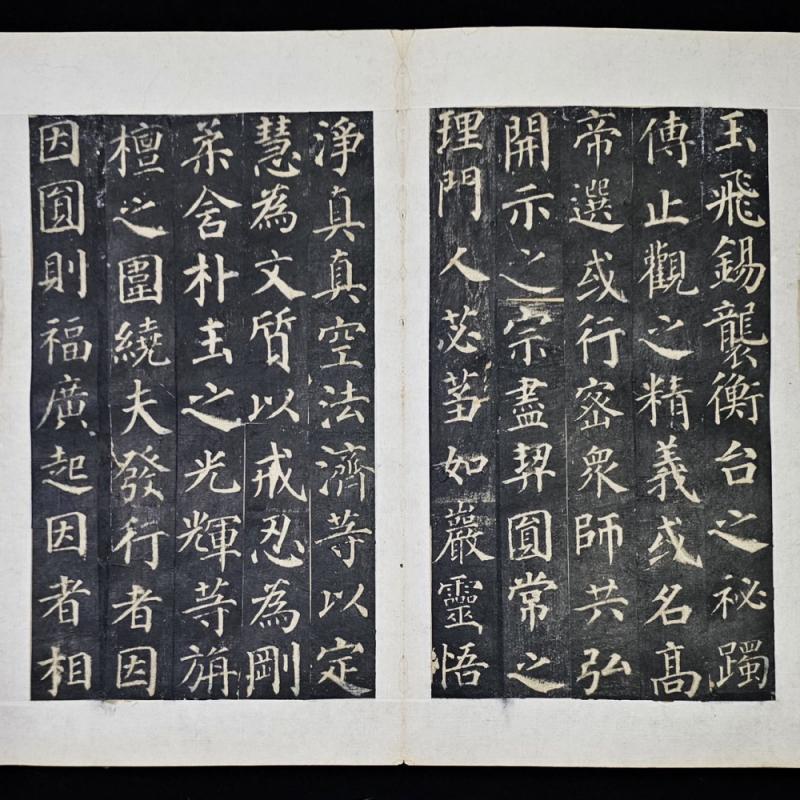 玉飛錫襲衡台之祕躅
傳止觀之精義或名高
帝選或行密衆師共弘
開示之宗盡契圎常之
理門人苾蒭如巖靈悟
淨真真空法濟等以定
慧為文質以戒忍為剛
柔含朴玉之光輝等旃
檀之圍繞夫發行者因
因圎則福廣起因者相